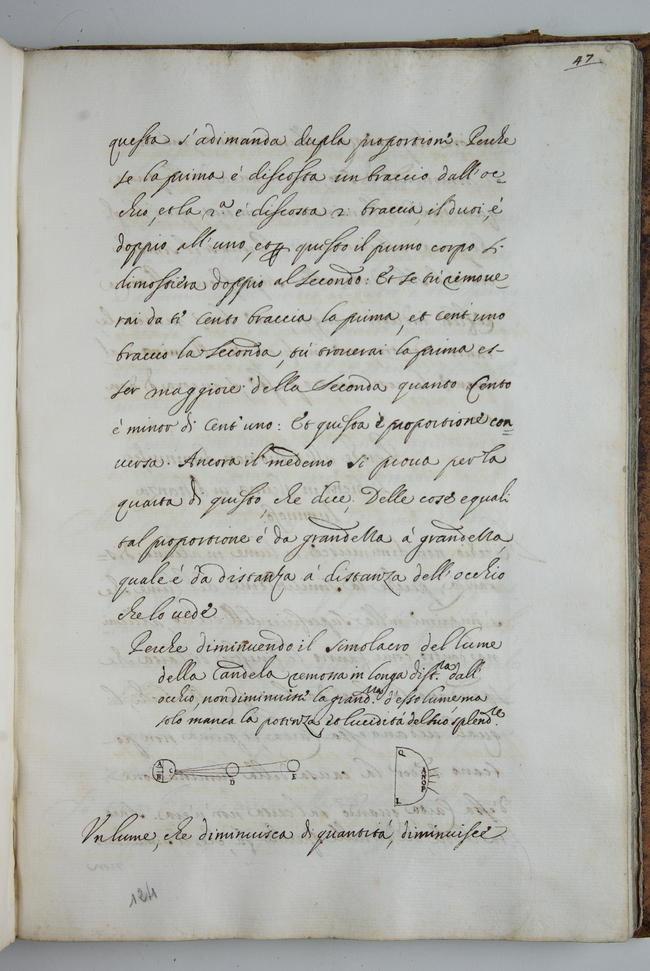 47
questa s'adimanda dupla proportione. Perche
se la prima è discosta un braccio dall'oc-
chio, et la 2.a è discosta 2: braccia, il duoi, è
doppio all'uno, et questo il primo corpo si
dimostrera doppio al secondo: Et se tu remoue-
rai da ti cento braccia la prima, et cent'uno
braccio la seconda, tu trouerai la prima es-
ser maggiore della seconda quanto cento
è minor di cent'uno: Et questa è proportione con
uersa. Ancora il medemo si proua per la
quarta di questo, che dice, Delle cose equali
tal proportione è da grandezza à grandezza,
quale è da distanza à distanza dell'occhio
che lo uede
Perche diminuendo il simolacro del lume
della candela remossa in longa dist.za dall'
occhio, non diminuisci la grand.za d'esso lume ma
solo manca la potenza, et luciditá del suo splend.re
A B C D E
Q
A N O P
L
Vn lume, che diminuisca di quantità, diminuisce
151